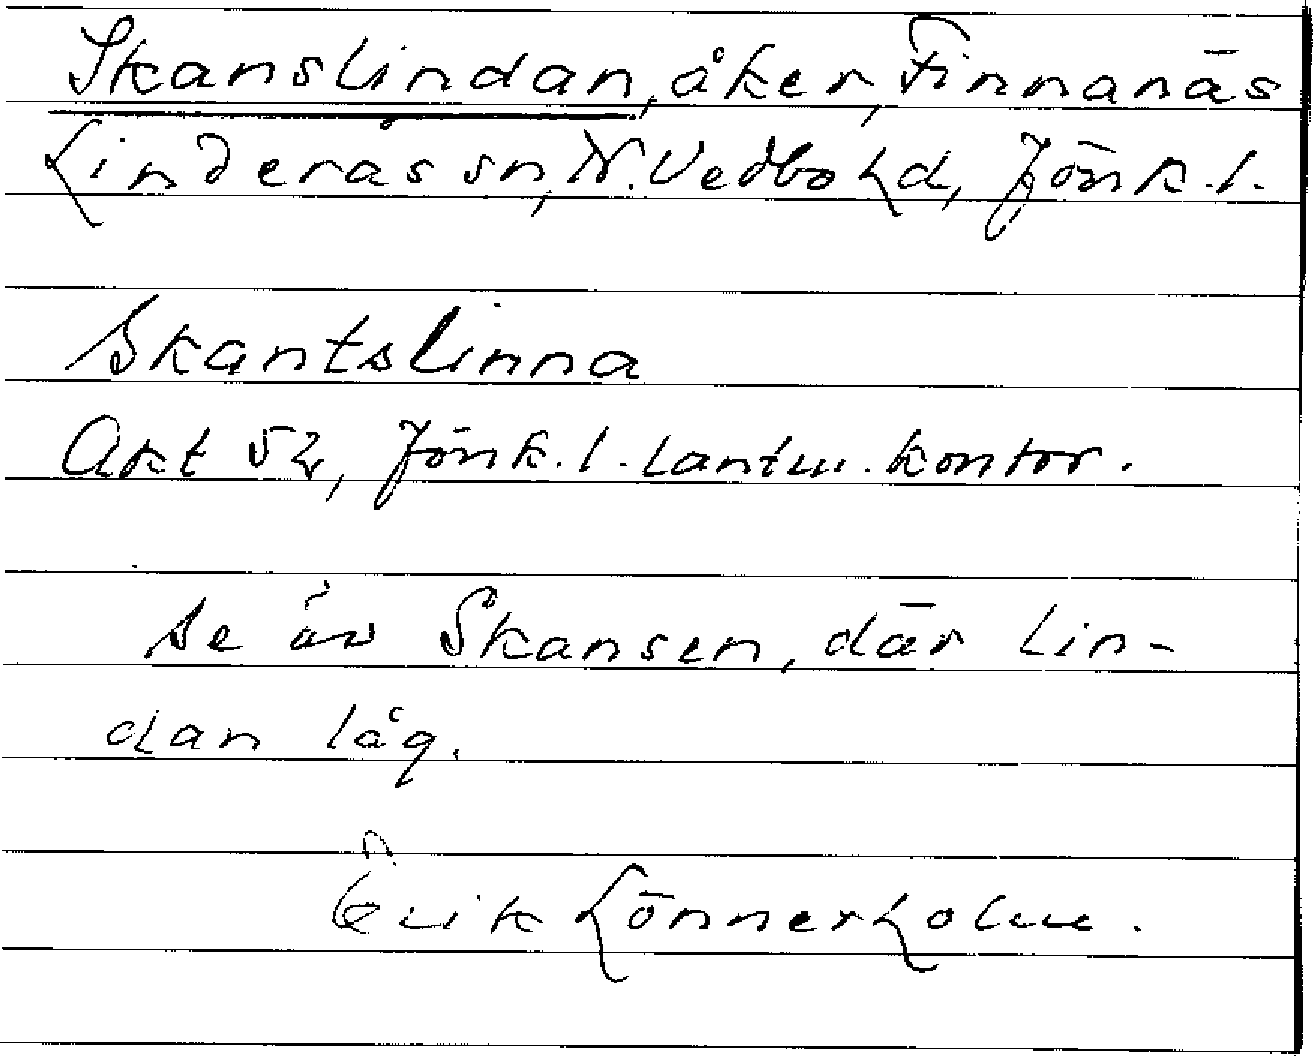 Skanslindan, åker, Finnanäs
Linderås sn, N. Vedbo hd, Jönk. l.
Skantslinna
Akt 52, Jönk. l. lantm. kontor.
Se äv Skansen, där lin-
dan låg.
Erik Lönnerholm.